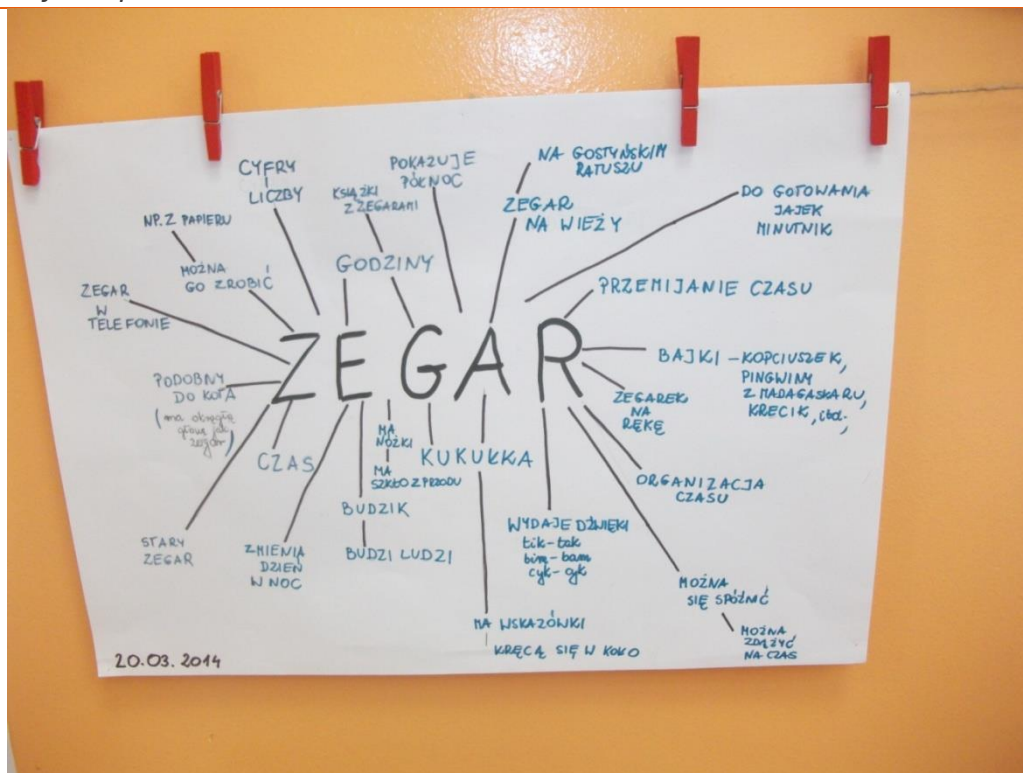 CYFRY
I
LICZBY
KSIĄŻKI
Z ZEGARAMI
POKAZUJE
PÓŁNOC
NA GOSTYŃSKIM
RATUSZU
ZEGAR
NA WIEŻY
DO GOTOWANIA
JAJEK
MINUTNIK
NP. Z PAPIERU
MOŻNA
GO ZROBIĆ
GODZINY
ZEGAR
W
TELEFONIE
PRZEMIJANIE CZASU
ZEGAR
BAJKI – KOPCIUSZEK,
PINGWINY
Z MADAGASKARU,
KRECIK, itd.,
PODOBNY
DO KOTA
(ma okrągłą
głowę jak
zegar)
ZEGAREK
NA
RĘKĘ
CZAS
MA
NÓŻKI
MA
SZKŁO Z PRZODU
KUKUŁKA
ORGANIZACJA
CZASU
BUDZIK
BUDZI LUDZI
STARY
ZEGAR
ZMIENIA
DZIEŃ
W NOC
WYDAJE DŹWIĘKI
tik-tak
bim-bam
cyk-cyk
MOŻNA
SIĘ SPÓŹNIĆ
MOŻNA
ZDĄŻYĆ
NA CZAS
MA WSKAZÓWKI
KRĘCĄ SIĘ W KOŁO
20.03.2014